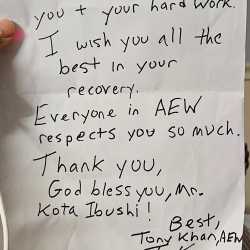 you + your hard work.
I wish you all the
best in your
recovery.
Everyone in AEW
respects you so much.
Thank you,
God bless you, Mr.
Kota Ibushi!
Best,
Tony Khan, AEW